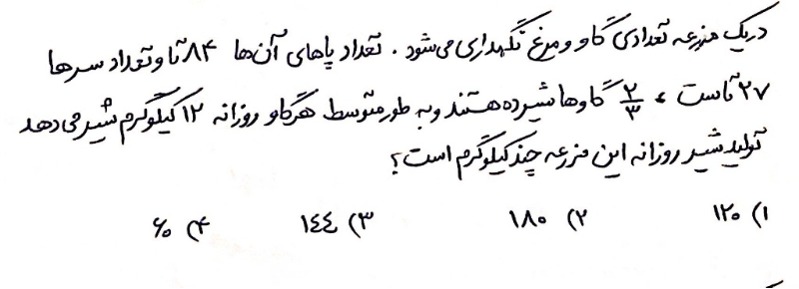 در یک مزرعه تعدادی گاو و مرغ نگهداری می‌شود . تعداد پاهای آن‌ها ۸۴ تا و تعداد سرها
۲۷ تاست ، ۲/۳ گاوها شیرده هستند و به طور متوسط هر گاو روزانه ۱۲ کیلوگرم شیر می‌دهد
تولید شیر روزانه این مزرعه چند کیلوگرم است؟
۱) ۱۲۰ ۲) ۱۸۰ ۳) ۱٤٤ ۴) ۶۰